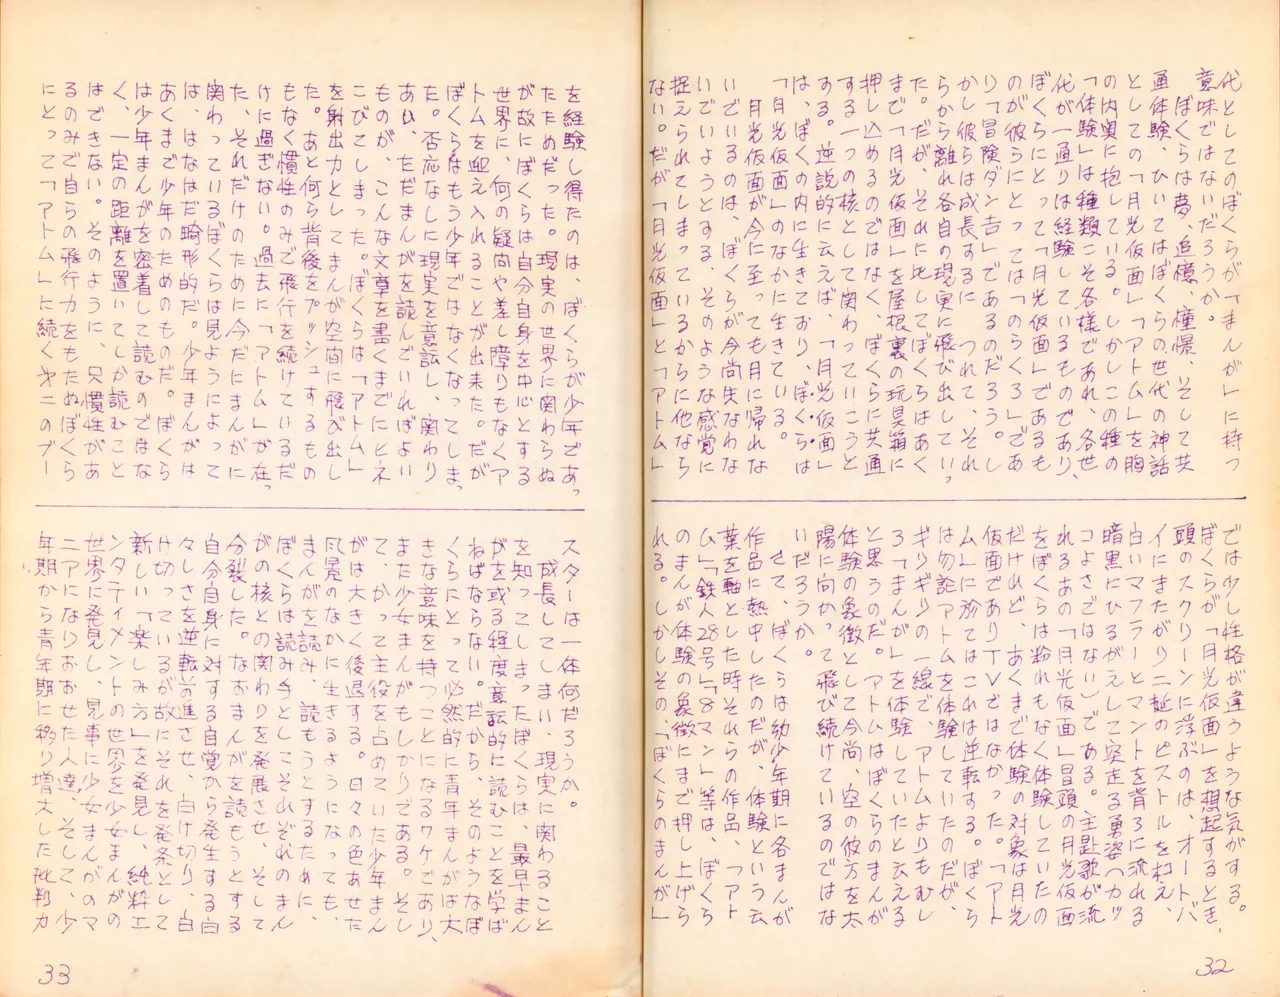 代としてのぼくらが「まんが」に持つ
意味ではないだろうか。
ぼくらは夢、追憶、憧憬、そして共
通体験、ひいてはぼくらの世代の神話
としての「月光仮面」「アトム」を胸
の内奥に抱している。しかしこの種の
「体験」は種類こそ各様であれ、各世
代が一通りは経験しているものであり、
ぼくらにとって「月光仮面」であるも
のが彼らにとっては「のらくろ」であ
り「冒険ダン吉」であるのだろう。し
かし彼らは成長するに つれて、それ
らから離れ各自の現実に飛び出していっ
た。だが、それに比してぼくらはあく
まで「月光仮面」を屋根裏の玩具箱に
押し込めるのではなく、ぼくらに共通
する一つの核として関わっていこうと
する。逆説的に云えば、「月光仮面」
は、ぼくらの内に生きており、ぼくらは
「月光仮面」のなかに生きている。
月光仮面が今に至っても月に帰れな
いでいるのは、ぼくらが今尚失なわな
いでいようとする、そのような感覚に
捉えられてしまっているからに他なら
ない。だが「月光仮面」と「アトム」
では少し性格が違うような気がする。
ぼくらが「月光仮面」を想起するとき、
頭のスクリーンに浮ぶのは、オートバ
イにまたがり二挺のピストルを構え、
白いマフラーとマントを背ろに流れる
暗黒にひるがえして突走る勇姿（カッ
コよさではない）である。主題歌が流
れるあの「月光仮面」冒頭の月光仮面
をぼくらは粉れもなく体験していたの
だけれど、あくまで体験の対象は月光
仮面でありTVではなかった。「アト
ム」に於てはこれは逆転する。ぼくら
は勿論アトムを体験していたのだが、
ギリギリの一線で、アトムよりもむし
ろ「まんが」を体験していたと云える
と思うのだ。アトムはぼくらのまんが
体験の象徴として今尚、空の彼方を太
陽に向かって飛び続けているのではな
いだろうか。
さて、ぼくらは幼少年期に各まんが
作品に熱中したのだが、体験という云
葉を軸とした時それらの作品、「アト
ム」「鉄人28号」「8マン」等は、ぼくら
のまんが体験の象徴にまで押し上げら
れる。しかしその、「ぼくらのまんが」
32
を経験し得たのは、ぼくらが少年であっ
たためだった。現実の世界に関わらぬ
が故にぼくらは自分自身を中心とする
世界に、何の疑問や差し障りもなくア
トムを迎え入れることが出来た。だが
ぼくらはもう少年ではなくなってしまっ
た。否応なしに現実を意識し、関わり
あい、ただまんがを読んでいればよい
ものが、こんな文章を書くまでにヒネ
こびてしまった。ぼくらは「アトム」
を射出力としてまんが空間に飛び出し
た。あと何ら背後をプッシュするもの
もなく慣性のみで飛行を続けているだ
けに過ぎない。過去に「アトム」が在っ
た、それだけのために今だにまんがに
関わっているぼくらは見ようによって
は、はなはだ畸形的だ。少年まんがは
あくまで少年のためのものだ。ぼくら
は少年まんがを密着して読むのではな
く、一定の距離を置いてしか読むこと
はできない。そのように、只慣性があ
るのみで自らの飛行力をもたぬぼくら
にとって「アトム」に続く才二のブー
スターは一体何だろうか。
成長してしまい、現実に関わること
を知ってしまったぼくらは、最早まん
がを或る程度意識的に読むことを学ば
ねばならない。だから、そのようなぼ
くらにとって必然的に青年まんがは大
きな意味を持つことになるワケであり、
また少女まんがもしかりである。そし
て、かって主役を占めていた少年まん
がは大きく後退する。日々の色あせた
風景のなかに生きるようになっても、
まんがを読み、読もうとするために
ぼくらは読み手としてそれぞれのまん
がの核との関わりを発展させ、そして
分裂した。なおまんがを読もうとする
自分自身に対する自覚から発生する白
々しさを逆転前進させ、白け切り、白
け切っているが故にそれを発条として
新しい「楽しみ方」を発見し、純粋エ
ンタティメントの世界を少女まんがの
世界に発見し、見事に少女まんがのマ
ニアになりおおせた人達、そして、少
年期から青年期に移り増大した批判力
33